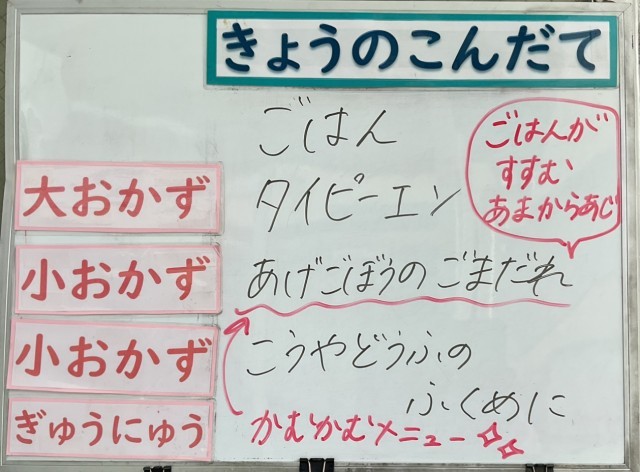 きょうのこんだて
ごはん
大おかず
タイピーエン
ごはんが
すすむ
あまからあじ
小おかず
あげごぼうのごまだれ
小おかず
こうやどうふの
ふくめに
ぎゅうにゅう
かむかむメニュー